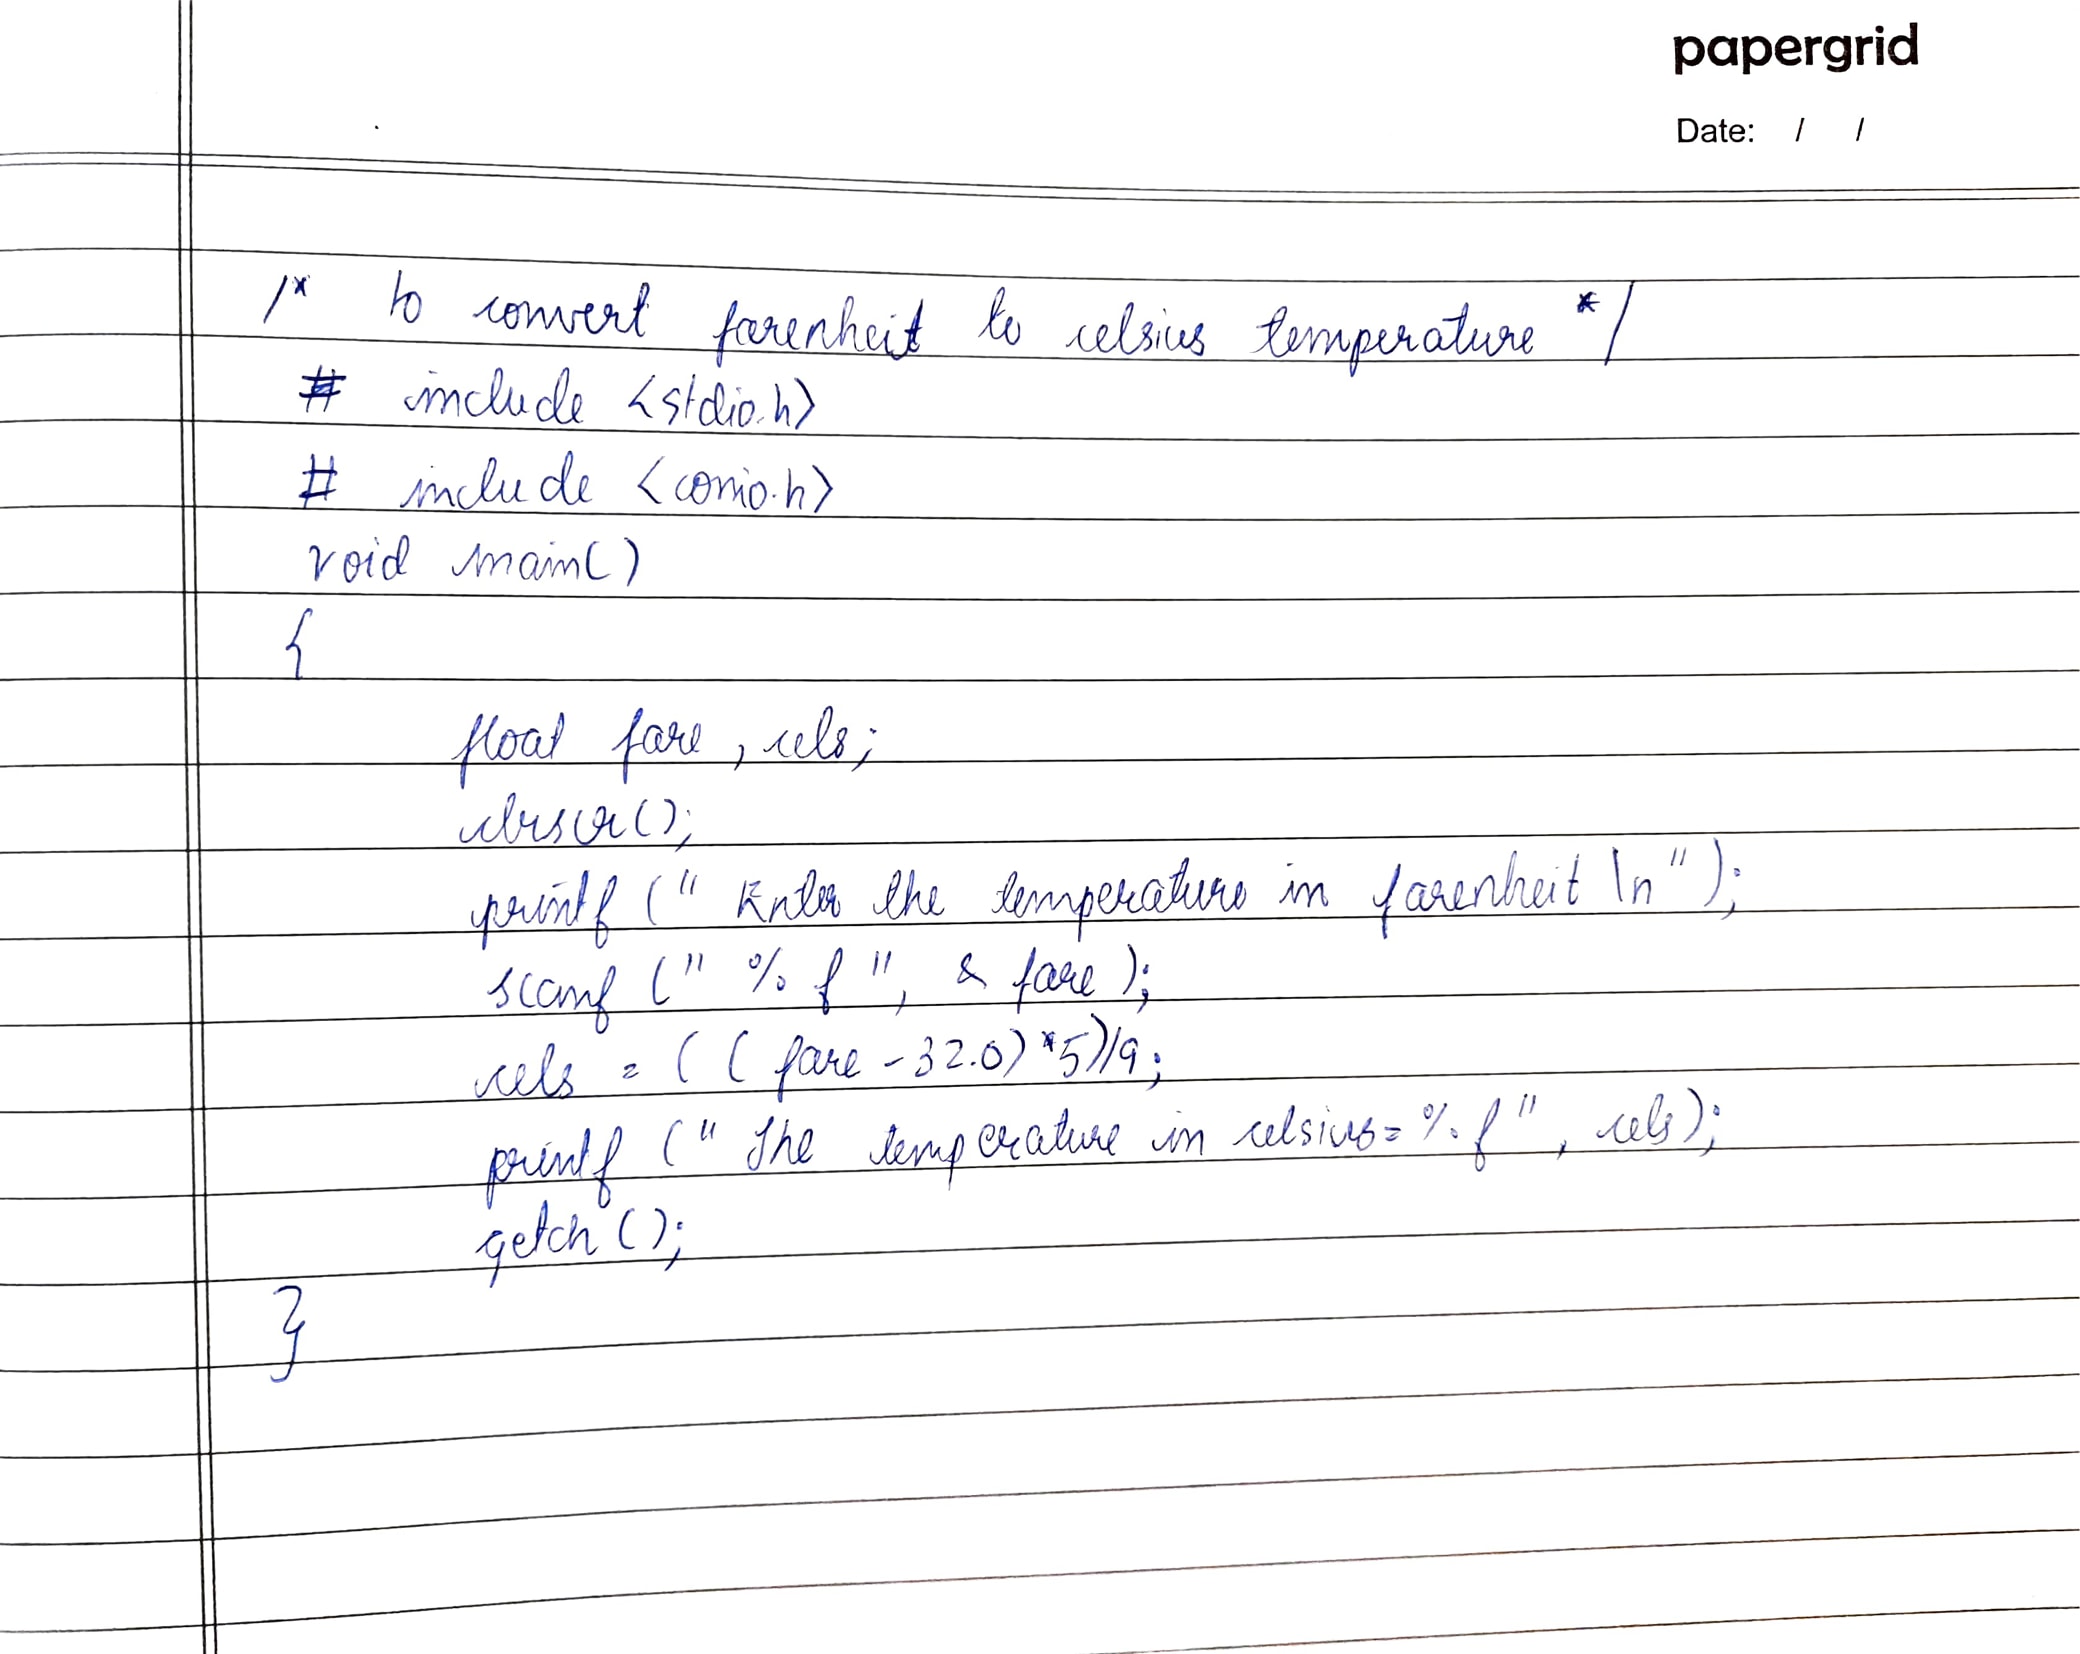 papergrid
Date: / /
/* to convert farenheit to celsius temperature */
# include <stdio.h>
# include <conio.h>
void main()
{
float fare, cels;
clrscr();
printf (" Enter the temperature in farenheit \n");
scanf (" % f ", & fare );
cels = ( ( fare - 32.0) *5)/9;
printf (" The temperature in celsius= %f ", cels);
getch ();
}